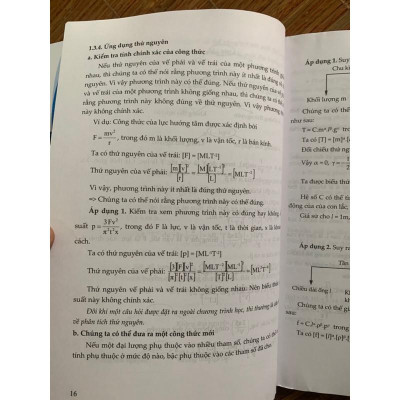 1.3.4. Ứng dụng thứ nguyên
a. Kiểm tra tính chính xác của công thức
Nếu thứ nguyên của vế phải và vế trái của một phương trình
nhau, thì chúng ta có thể nói rằng phương trình này ít nhất là đúng
nguyên. Vì vậy phương trình này có thể đúng. Nếu thứ nguyên của vế
và vế trái của một phương trình không giống nhau, thì chúng ta có thể
rằng phương trình này không đúng về thứ nguyên. Vì vậy phương
này không chính xác.
Ví dụ: Công thức của lực hướng tâm được xác định bởi
F = mv²/r, trong đó m là khối lượng, v là vận tốc, r là bán kính.
Ta có thứ nguyên của vế trái: [F] = [MLT⁻²]
Thứ nguyên của vế phải:
Vì vậy, phương trình này ít nhất là đúng thứ nguyên.
=> Chúng ta có thể nói rằng phương trình này có thể đúng.
Áp dụng 1. Kiểm tra xem phương trình này có đúng hay không
suất p = , trong đó F là lực, v là vận tốc, t là thời gian, x là
cách.
Ta có thứ nguyên của vế trái: [p] =
Thứ nguyên của vế phải:
Thứ nguyên vế phải và vế trái không giống nhau. Nên biểu thức
suất này không chính xác.
Đôi khi một câu hỏi được đặt ra ngoài chương trình học, thì thường là
về phân tích thứ nguyên.
b. Chúng ta có thể đưa ra một công thức mới
Nếu một đại lượng phụ thuộc vào nhiều tham số, chúng ta có thể
tính phụ thuộc ở mức độ nào, bậc phụ thuộc vào các tham số đã cho.
16
Áp dụng 1. Suy
Chu kì
Khối lượng m
Chúng ta có thể
như sau:
Ta có [T] = [m]ᵃ
Đối chiếu thứ nguyên
Vậy α = 0,
Ta được biểu thức
Hệ số C có thể
động của của con lắc.
Giả sử cho l = 1m,
Áp dụng 2. Suy ra
Chiều dài ống l
Chúng ta có thể
Ta có [f] =